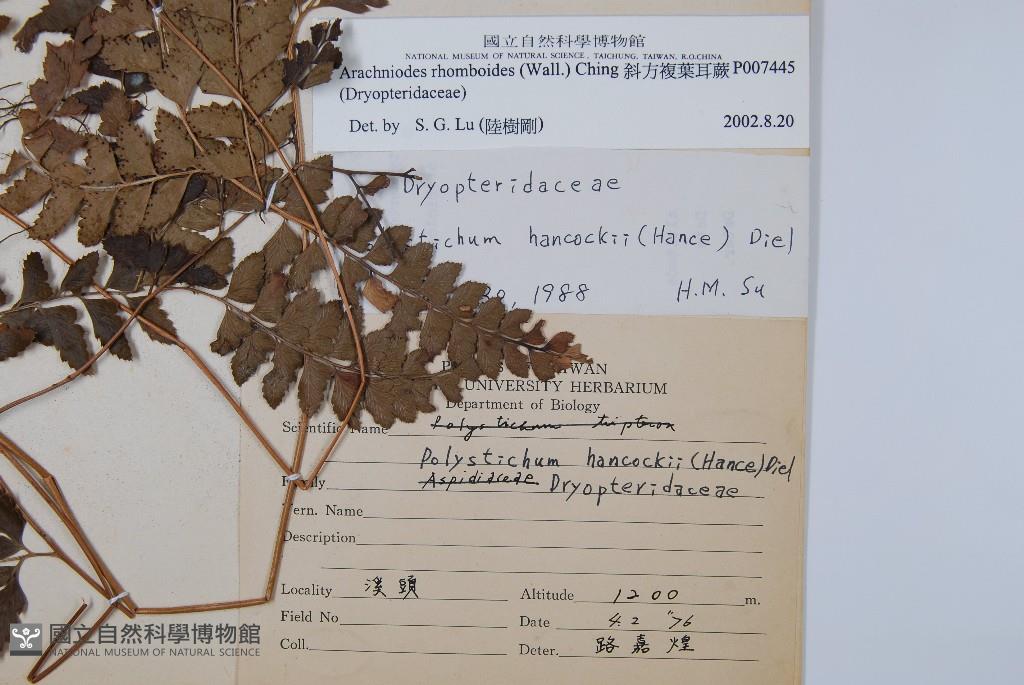 國立自然科學博物館
NATIONAL MUSEUM OF NATURAL SCIENCE, TAICHUNG, TAIWAN, R.O.CHINA
Arachniodes rhomboides (Wall.) Ching 斜方複葉耳蕨 P007445
(Dryopteridaceae)
Det. by S. G. Lu (陸樹剛) 2002.8.20
Dryopteridaceae
stichum hancockii (Hance) Diel
30, 1988 H.M. Su
WAN
UNIVERSITY HERBARIUM
Department of Biology
Scientific Name Polystichum tripteron
Polystichum hancockii (Hance) Diel
Family Aspidiaceae Dryopteridaceae
Vern. Name
Description
Locality 溪頭 Altitude 1200 m.
Field No Date 4. 2 '76
Coll. Deter. 路嘉煌
國立自然科學博物館
NATIONAL MUSEUM OF NATURAL SCIENCE